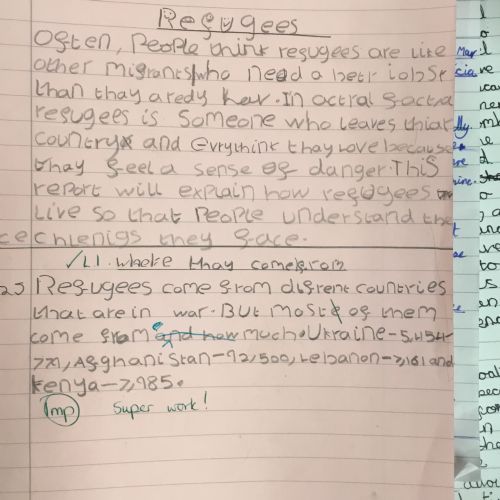 Refugees
Often, People think refugees are like
other migrants who need a betr
than thay aredy hav. In actral
refugees is someone who leaves thiar
country and Evrythink they love because
thay feel a sense of danger. This
report will explain how refugees
Live so that People understand the
they face.
L1. where thay come from
Refugees come from difrent countries
that are in war. But most of them
come from and how much. Ukraine-5,454-
771, Afghanistan-12,500, Lebanon-7,161 and
kenya-7,985.
mp Super work!